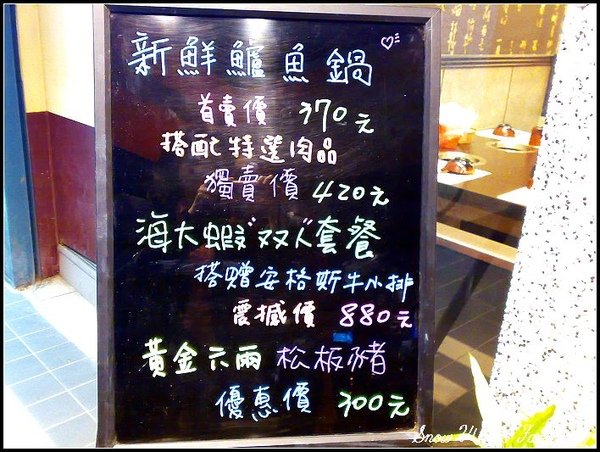 新鮮鱸魚鍋
首賣價 370元
搭配特選肉品
獨賣價 420元
海大蝦"双人"套餐
搭贈安格斯牛小排
震撼價 880元
黃金六兩松板豬
優惠價 300元
Snow